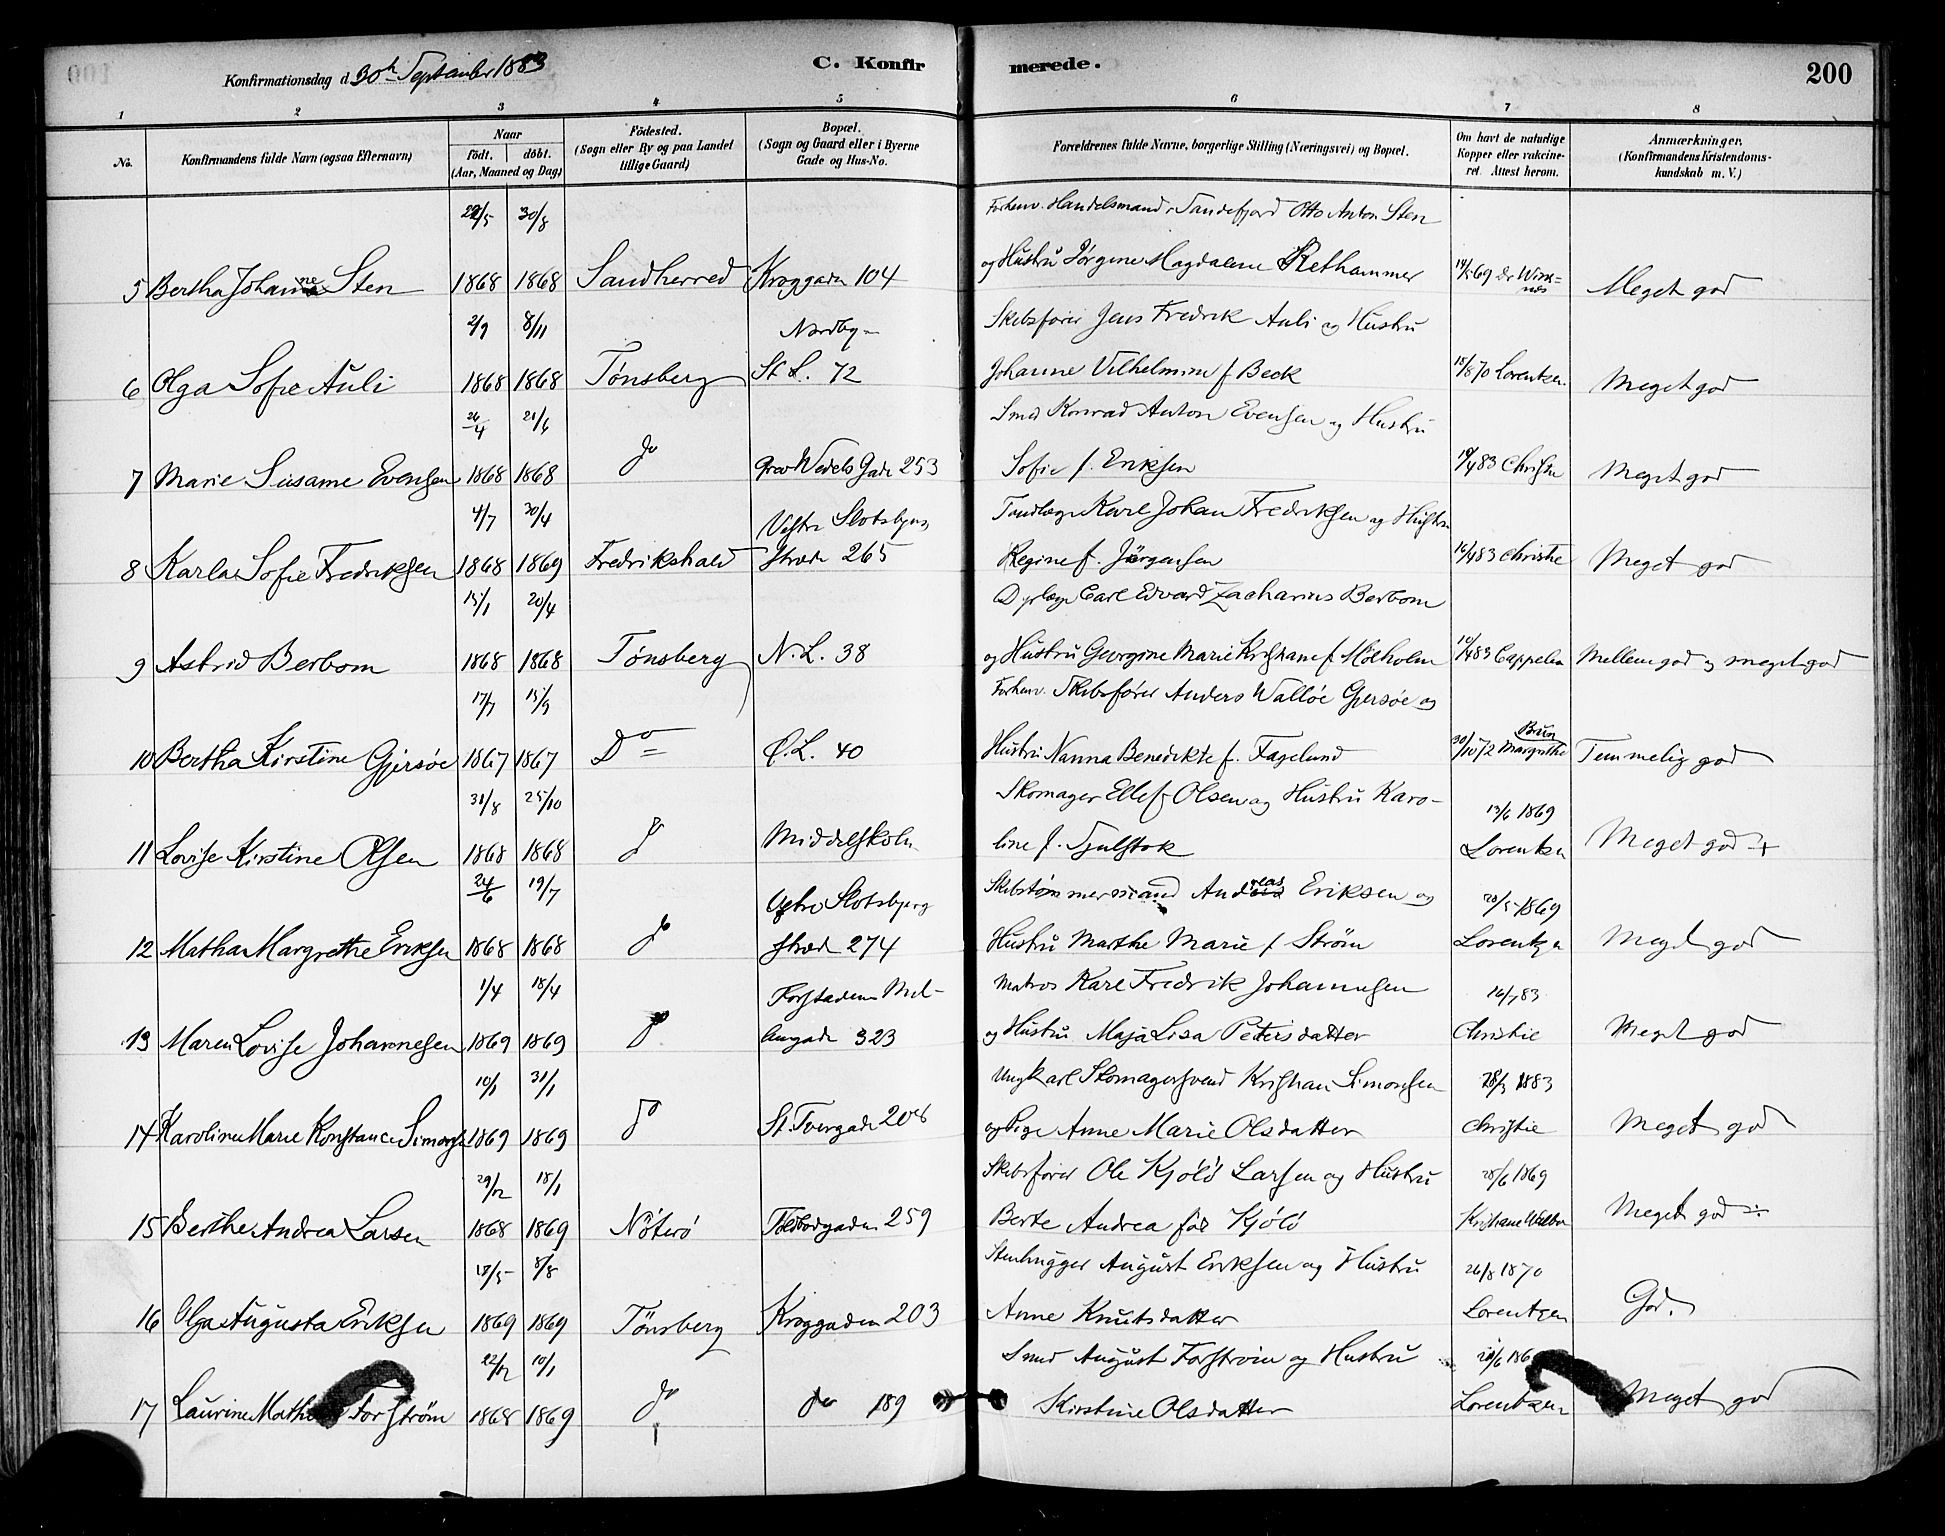 Konfirmationsdag d. 30th September 1883
C. Konfirmerede.
200
1 2 3 4 5 6 7 8
No.
Konfirmandens fulde Navn (ogsaa Efternavn)
Naar
födt. döbt.
(Aar, Maaned og Dag)
Födested.
(Sogn eller By og paa Landet
tillige Gaard)
Bopæl.
(Sogn og Gaard eller i Byerne
Gade og Hus-No.
Forældrenes fulde Navne, borgerlige Stilling (Næringsvei) og Bopæl.
Om havt de naturlige
Kopper eller vakcine-
ret. Attest herom.
Anmærkninger.
(Konfirmandens Kristendoms-
kundskab m. V.)
22/5 30/8 Forhenv. Handelsmand, Sandefjord Otto Anton Sten
5 Bertha Johanne Sten 1868 1868 Sandherred Kroggaden 104 og Hustru Jörgine Magdalene Rethammer 14/5 69 Meget god
2/9 8/11 Nordby- Skibsfører Jens Fredrik Auli og Hustru
6 Olga Sofie Auli 1868 1868 Tønsberg St. L. 72 Johanne Vilhelmine f. Beck 18/8 70 Lorentzen Meget god
26/4 21/6 Smed Konrad Anton Evensen og Hustru
7 Marie Susanne Evensen 1868 1868 do Grev Wedels Gade 253 Sofie f. Eriksen 10/4 83 Christie Meget god
4/7 30/4 Vestre Slotsbjerg Tandlæge Karl Johan Fredriksen og Hustru
8 Karla Sofie Fredriksen 1868 1869 Fredrikshald Stræde 265 Regine f. Jörgensen 16/4 83 Christie Meget god
15/1 20/4 Dyrlæge Carl Edvard Zacharius Berbom
9 Astrid Berbom 1868 1868 Tønsberg N. L. 38 og Hustru Georgine Marie Kristiane f. Mölholm 10/4 83 Cappelen Mellem god og meget god
17/7 15/9 Forhenv. Skibsfører Anders Walløe Gjersøe og
10 Bertha Kirstine Gjersøe 1867 1867 Do Ö. L. 40 Hustru Nanna Benedikte f. Fagelund 30/10 72 Margrethe Bun Temmelig god
31/8 25/10 Skomager Ellef Olsen og Hustru Karo- 13/6 1869
11 Lovise Kirstine Olsen 1868 1868 do Middelskolen line f. Lorentzen Meget god +
24/6 19/7 Østre Slotsbjerg Skibstømmermand Andreas Eriksen og 20/5 1869
12 Mathea Margrethe Eriksen 1868 1868 do Stræde 274 Hustru Marthe Marie f. Strøm Lorentzen Meget god
1/4 18/4 Forstadens Mel- Matros Karl Fredrik Johannesen 16/7 83
13 Maren Lovise Johannesen 1869 1869 do lemgade 323 og Hustru Maja Lisa Petersdatter Christie Meget god
10/1 31/1 Ungkarl Skomagersvend Kristian Simonsen 28/3 1883
14 Karoline Marie Konstance Simonsen 1869 1869 do St. Tvergade 208 og Pige Anne Marie Olsdatter Christie Meget god
29/12 18/1 Skibsfører Ole Kjölö Larsen og Hustru 28/6 1869
15 Berthe Andrea Larsen 1868 1869 Nöterö Toldbodgaden 259 Berte Andrea född Kjölö Meget god ÷
18/5 8/8 Stenhugger August Eriksen og Hustru 26/8 1870
16 Olga Augusta Eriksen 1869 1869 Tönsberg Kroggaden 203 Anne Knutsdatter Lorentzen God.
22/12 10/1 Smed August Forström og Hustru
17 Laurine Forström 1868 1869 do do 189 Kirstine Olsdatter Lorentzen Meget god